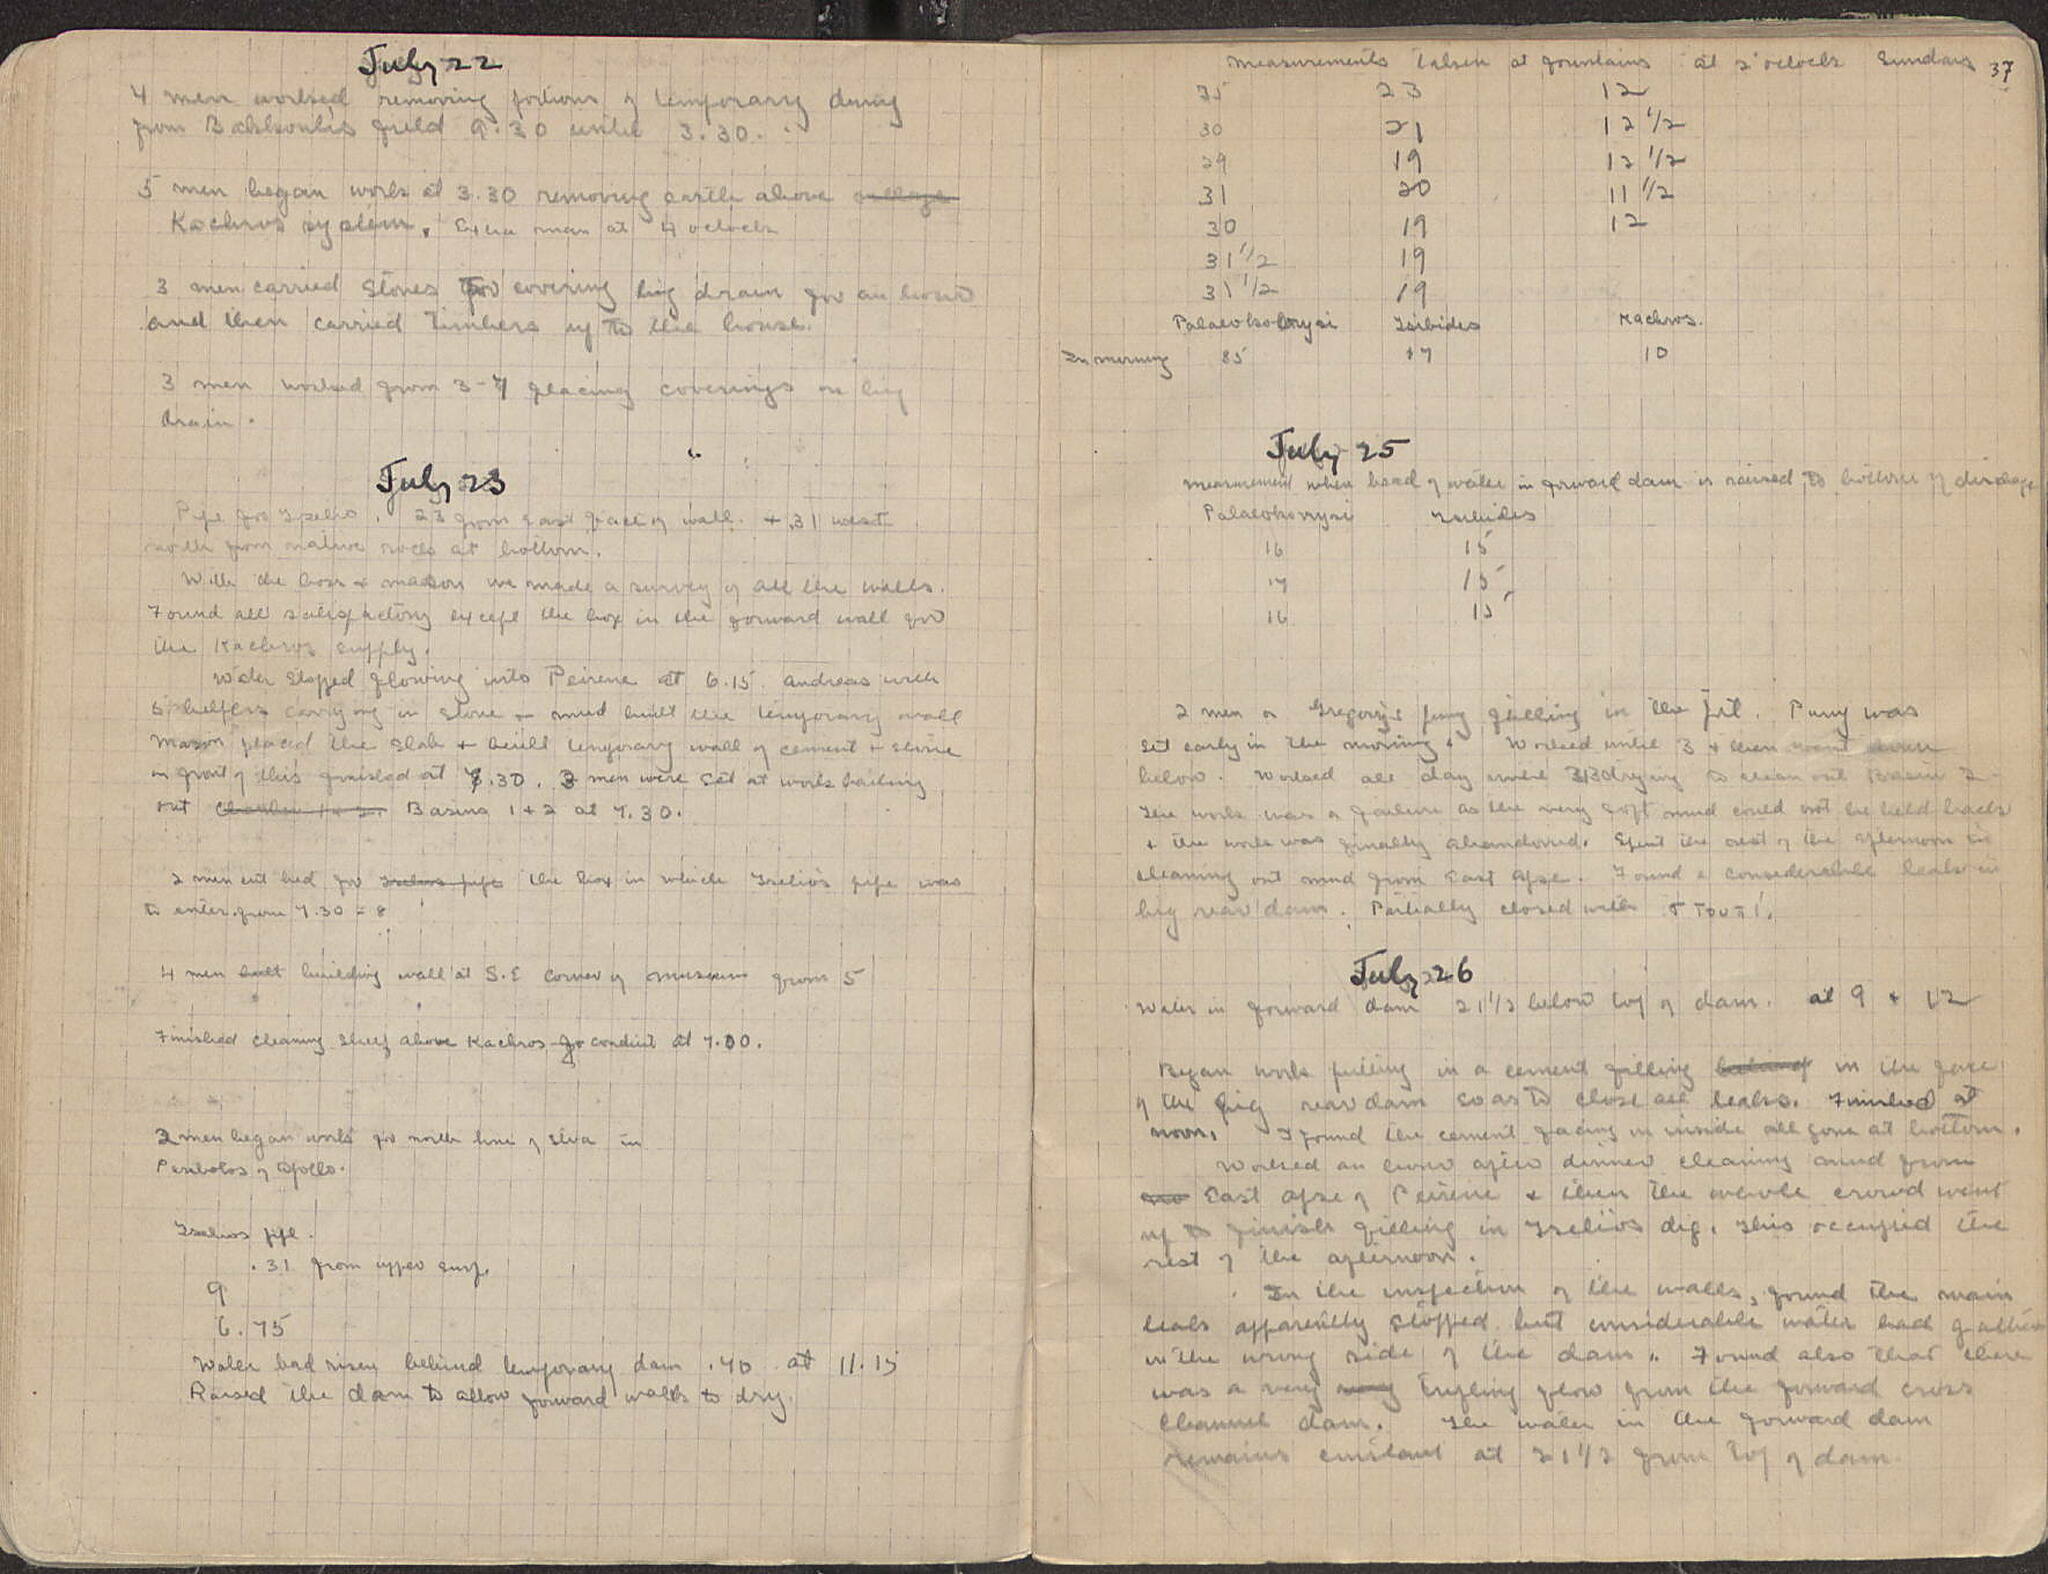 July 22
4 men worked removing portions of temporary dump
from field 9.30 until 3.30.
5 men began work at 3.30 removing earth above village
Kachros system. Extra man at 4 oclock
3 men carried stones for covering big drain for an hour
and then carried timbers up to the house.
3 men worked from 3-7 placing coverings on big
drain.
July 23
Pipe for . 23 from east face of wall. + .31 west
north from native rock at bottom.
With the boss + mason we made a survey of all the walls.
Found all satisfactory except the box in the forward wall for
the Kachros supply.
Water stopped flowing into Peirene at 6.15. Andreas with
5 helpers carrying in stone + mud built the temporary wall
Mason placed the slab + built temporary wall of cement + stone
in front of this finished at 7.30. 3 men were set at work bailing
out Chamber 1 + 2. Basins 1 + 2 at 7.30.
2 men cut bed for Tselios pipe the box in which Tselios pipe was
to enter from 7.30 = 8
4 men built building wall at S.E corner of museum from 5
Finished cleaning shelf above Kachros conduit at 7.00.
2 men began work for north line of stoa in
Peribolos of Apollo.
Tselios pipe.
.31 from upper surf.
9
6.75
Water had risen behind temporary dam .40 at 11.15
Raised the dam to allow forward walls to dry.
37
Measurements taken at fountains at 2 oclock Sunday
35 23 12
30 21 12 1/2
29 19 12 1/2
31 20 11 1/2
30 19 12
31 1/2 19
31 1/2 19
Palaeokorysi Tsibides Kachros.
In morning 85 17 10
July 25
Measurement when head of water in forward dam is raised to bottom of
Palaeokorysi Tsibides
16 15
17 15
16 15
2 men on Gregory's filling in the pit. Pump was
set early in the morning. Worked until 3 + then went down
below. Worked all day until 3.30 trying to clean out Basin 2.
The work was a failure as the very soft mud could not be held back
+ the work was finally abandoned. Spent the rest of the afternoon in
cleaning out mud from East Apse. Found a considerable leak in
big rear dam. Partially closed with στουπί.
July 26
Water in forward dam 21 1/2 below top of dam. at 9 + 12
Began work putting in a cement filling behind in the face
of the big rear dam so as to close all leaks. Finished at
noon. I found the cement facing on inside all gone at bottom.
Worked an hour after dinner cleaning mud from
East apse of Peirene + then the whole crowd went
up to finish filling in Tselios dig. This occupied the
rest of the afternoon.
In the inspection of the walls, found the main
leak apparently stopped but considerable water had gathered
on the wrong side of the dam. Found also that there
was a very trifling flow from the forward cross
channel dam. The water in the forward dam
remains constant at 21 1/2 from top of dam.